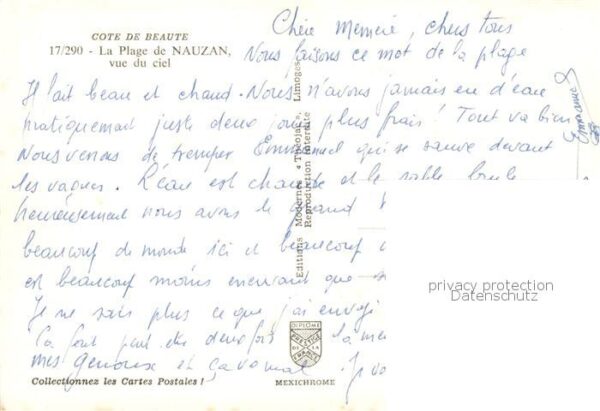 COTE DE BEAUTE
17/290 - La Plage de NAUZAN,
vue du ciel
Chère Mémère, chers tous
Nous faisons ce mot de la plage
Il fait beau et chaud. Nous n'avons jamais eu d'eau
pratiquement juste deux jours plus frais! Tout va bien
Nous venons de tremper Emmanuel qui se sauve devant
les vagues. L'eau est chaude et le sable brule
heureusement nous avons le grand
beaucoup de monde ici et beaucoup
est beaucoup moins que
Je ne sais plus ce que j'ai envoyé
Ça fait peut être deux fois la
mes Genoux et ça va mal. Je
Editions Modernes « Théojac », Limoges
Reproduction Interdite
DIPLOME
PRESTIGE
DE LA
FRANCE
Collectionnez les Cartes Postales !
MEXICHROME
privacy protection
Datenschutz